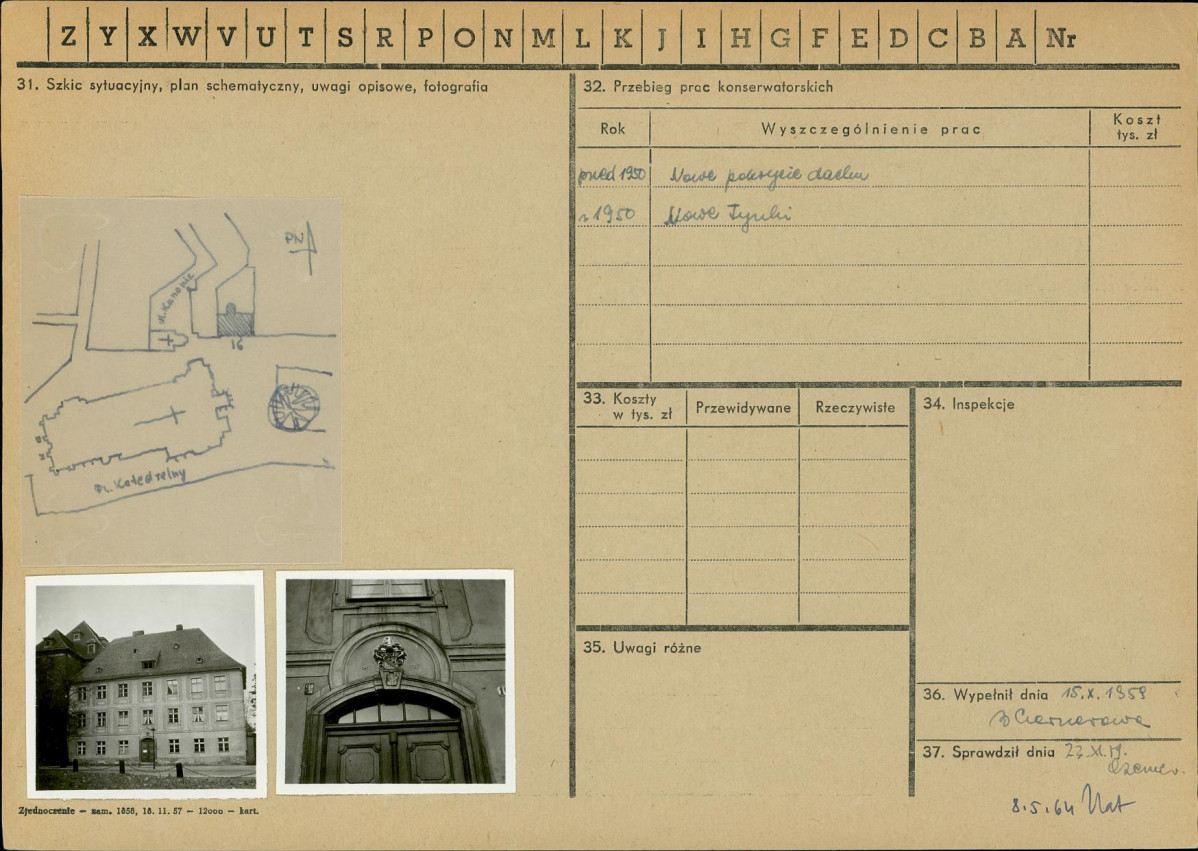 Z Y X W V U T S R P O N M L K J I H G F E D C B A Nr
31. Szkic sytuacyjny, plan schematyczny, uwagi opisowe, fotografia
PN
ul. Kanonia
16
Pl. Katedralny
Zjednoczenie — zam. 1858, 18. 11. 57 — 12000 — kart.
32. Przebieg prac konserwatorskich
Rok
Wyszczególnienie prac
Koszt
tys. zł
przed 1950 Nowe pokrycie dachu
r. 1950 Nowe Tynki
33. Koszty
w tys. zł
Przewidywane
Rzeczywiste
34. Inspekcje
35. Uwagi różne
36. Wypełnił dnia 15.X.1959
37. Sprawdził dnia
8.5.64